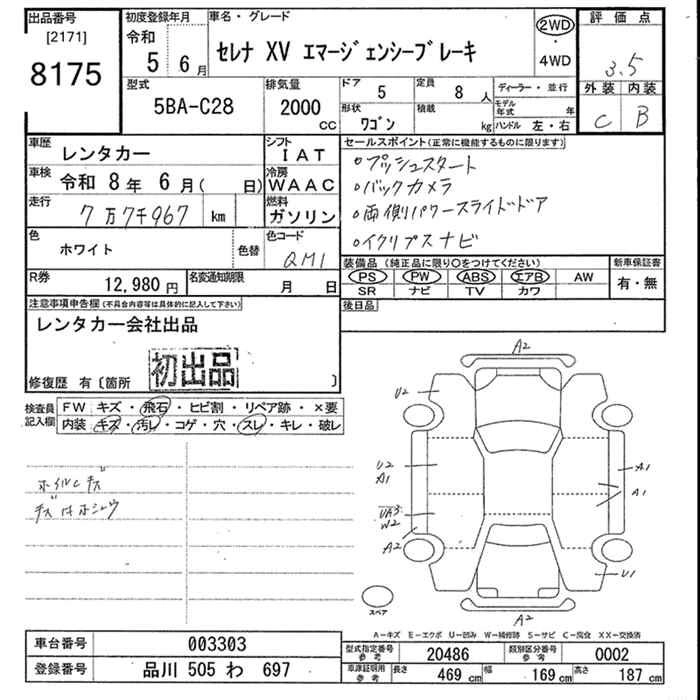 出品番号
[2171]
8175
初度登録年月
令和
5 6月
車名・グレード
セレナ XV エマージェンシーブレーキ
2WD
・
4WD
評価点
3.5
外装 内装
C B
型式
5BA-C28
排気量
2000
CC
ドア
5
形状
ワゴン
定員
8人
積載
kg
ディーラー・並行
モデル年式 年
ハンドル 左・右
車歴
レンタカー
車検 令和 8年 6月( 日)
走行
7万7千967 km
色
ホワイト
色替
シフト
IAT
冷房
WAAC
燃料
ガソリン
色コード
QM1
セールスポイント(正常に機能するものに限ります)
・プッシュスタート
・バックカメラ
・両側パワースライドドア
・イクリプスナビ
装備品(純正品に限り○をつけてください)
PS PW ABS エアB AW
SR ナビ TV カワ
新車保証書
有・無
後日品
R券
12,980円
名変通知期限
月 日
注意事項申告欄(不具合内容等は具体的に記入して下さい)
レンタカー会社出品
初出品
修復歴 有〔箇所 〕
検査員記入欄
FW キズ・飛石・ヒビ割・リペア跡・×要
内装 キズ・汚レ・コゲ・穴・スレ・キレ・破レ
ホイルCキズ
キズ汁ホシュウ
A2
U2
U2
A1
UA3
W2
A2
A1
A1
U1
A2
スペア
A-キズ E-エクボ U-凹み W-補修跡 S-サビ C-腐食 XX-交換済
車台番号 003303
登録番号 品川 505 わ 697
型式指定番号 参考 20486
類別区分番号 参考 0002
車庫証明用 参考
長さ 469 cm
幅 169 cm
高さ 187 cm